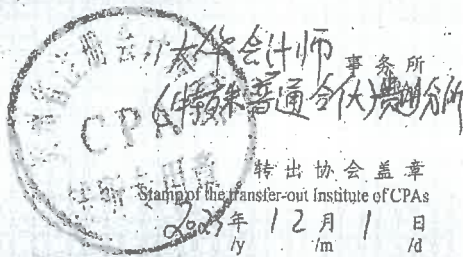 大华会计师事务所
(特殊普通合伙)贵州分所
CPA
转出协会盖章
Stamp of the transfer-out Institute of CPAs
2023年12月1日
/y /m /d